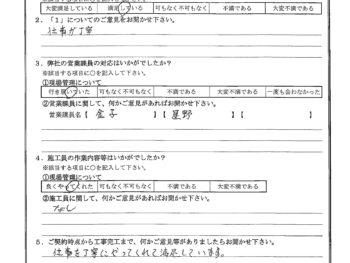 大変満足している 満足している 可もなく不可もなく 不満である 大変不満である
2．「1」についてのご意見をお聞かせ下さい。
仕事が丁寧
3．弊社の営業課員の対応はいかがでしたか？
※該当する項目に○を記入して下さい。
①現場管理について
行き届いていた 可もなく不可もなく 不満である 大変不満である 一度も会わなかった
②営業課員に関して、何かご意見があればお聞かせ下さい。
営業課員名【 金子 】【 星野 】
4．施工員の作業内容等はいかがでしたか？
※該当する項目に○を記入して下さい。
①現場管理について
良くやってくれた 可もなく不可もなく 不満である 大変不満である
③施工員に関して、何かご意見があればお聞かせ下さい。
なし
5．ご契約時点から工事完工まで、何かご意見等がありましたらお聞かせ下さい。
仕事を丁寧にやってくれて満足しています。